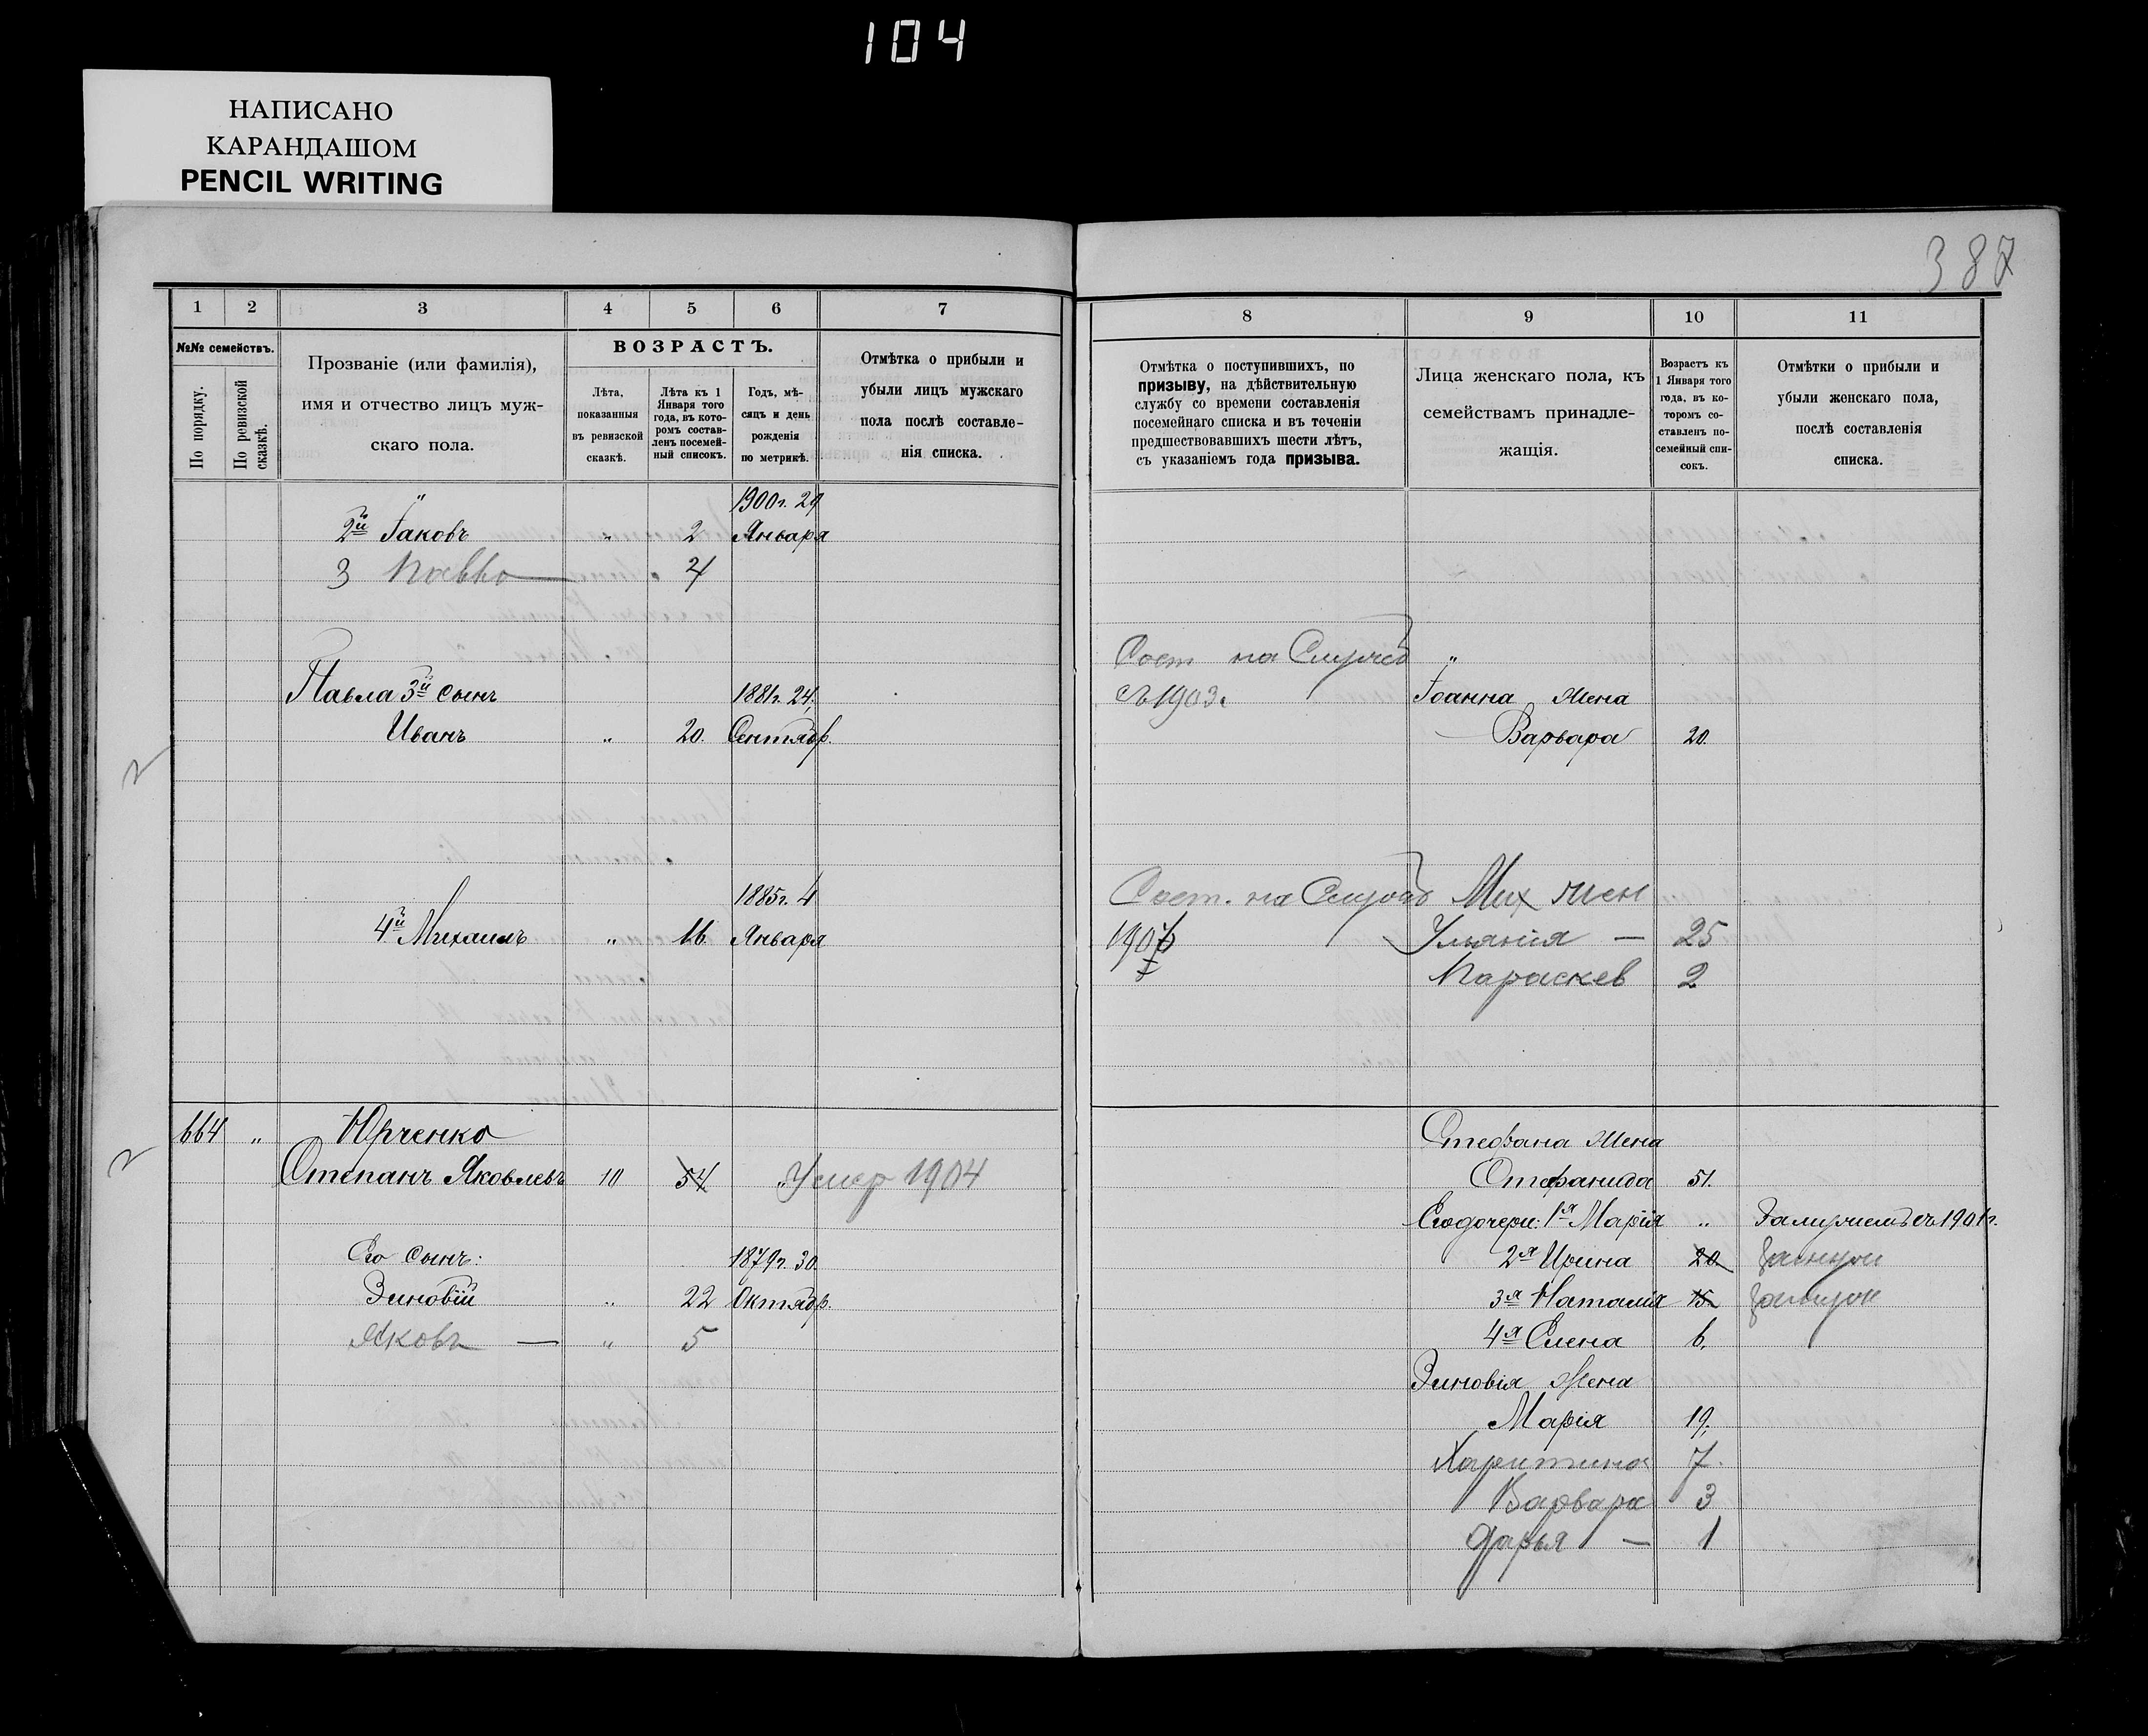 104
НАПИСАНО
КАРАНДАШОМ
PENCIL WRITING
387
1 2 3 4 5 6 7
№№ семействъ.
По порядку.
По ревизской сказкѣ.
Прозваніе (или фамилія),
имя и отчество лицъ муж-
скаго пола.
ВОЗРАСТЪ.
Лѣта,
показанныя
въ ревизской
сказкѣ.
Лѣта къ 1
Января того
года, въ кото-
ромъ состав-
ленъ посемей-
ный списокъ.
Годъ, мѣ-
сяцъ и день
рожденія
по метрикѣ.
Отмѣтка о прибыли и
убыли лицъ мужскаго
пола послѣ составле-
нія списка.
1900г. 29
2й Іаковъ " 2 Января
3 Павло — 4
Павла 3й сынъ 1881г. 24,
Иванъ " 20. Сентябр.
1885г. 4
4й Михаилъ " 16. Января
664 " Юрченко
Степанъ Яковлевъ 10 54 Умер 1904
Его сынъ: 1879г. 30.
Зиновій " 22 Октябр.
Яковъ — " 5
8 9 10 11
Отмѣтка о поступившихъ, по
призыву, на дѣйствительную
службу со времени составленія
посемейнаго списка и въ теченіи
предшествовавшихъ шести лѣтъ,
съ указаніемъ года призыва.
Лица женскаго пола, къ
семействамъ принадле-
жащія.
Возрастъ къ
1 Января того
года, въ ко-
торомъ со-
ставленъ по-
семейный спи-
сокъ.
Отмѣтки о прибыли и
убыли женскаго пола,
послѣ составленія
списка.
Сост на Службѣ "
съ 1903г Іоанна жена
Варвара 20.
Сост. на Службѣ Мих жен
190 Ульянія — 25
Параскев 2
Стефана жена
Стефанида 51.
Его дочери: 1я Марія " Замужемъ съ 1901г.
2я Ирина 20 замуж
3я Наталія 15 замуж
4я Елена 6.
Зиновія жена
Марія 19,
Харитина 7.
Варвара 3
Дарья — 1